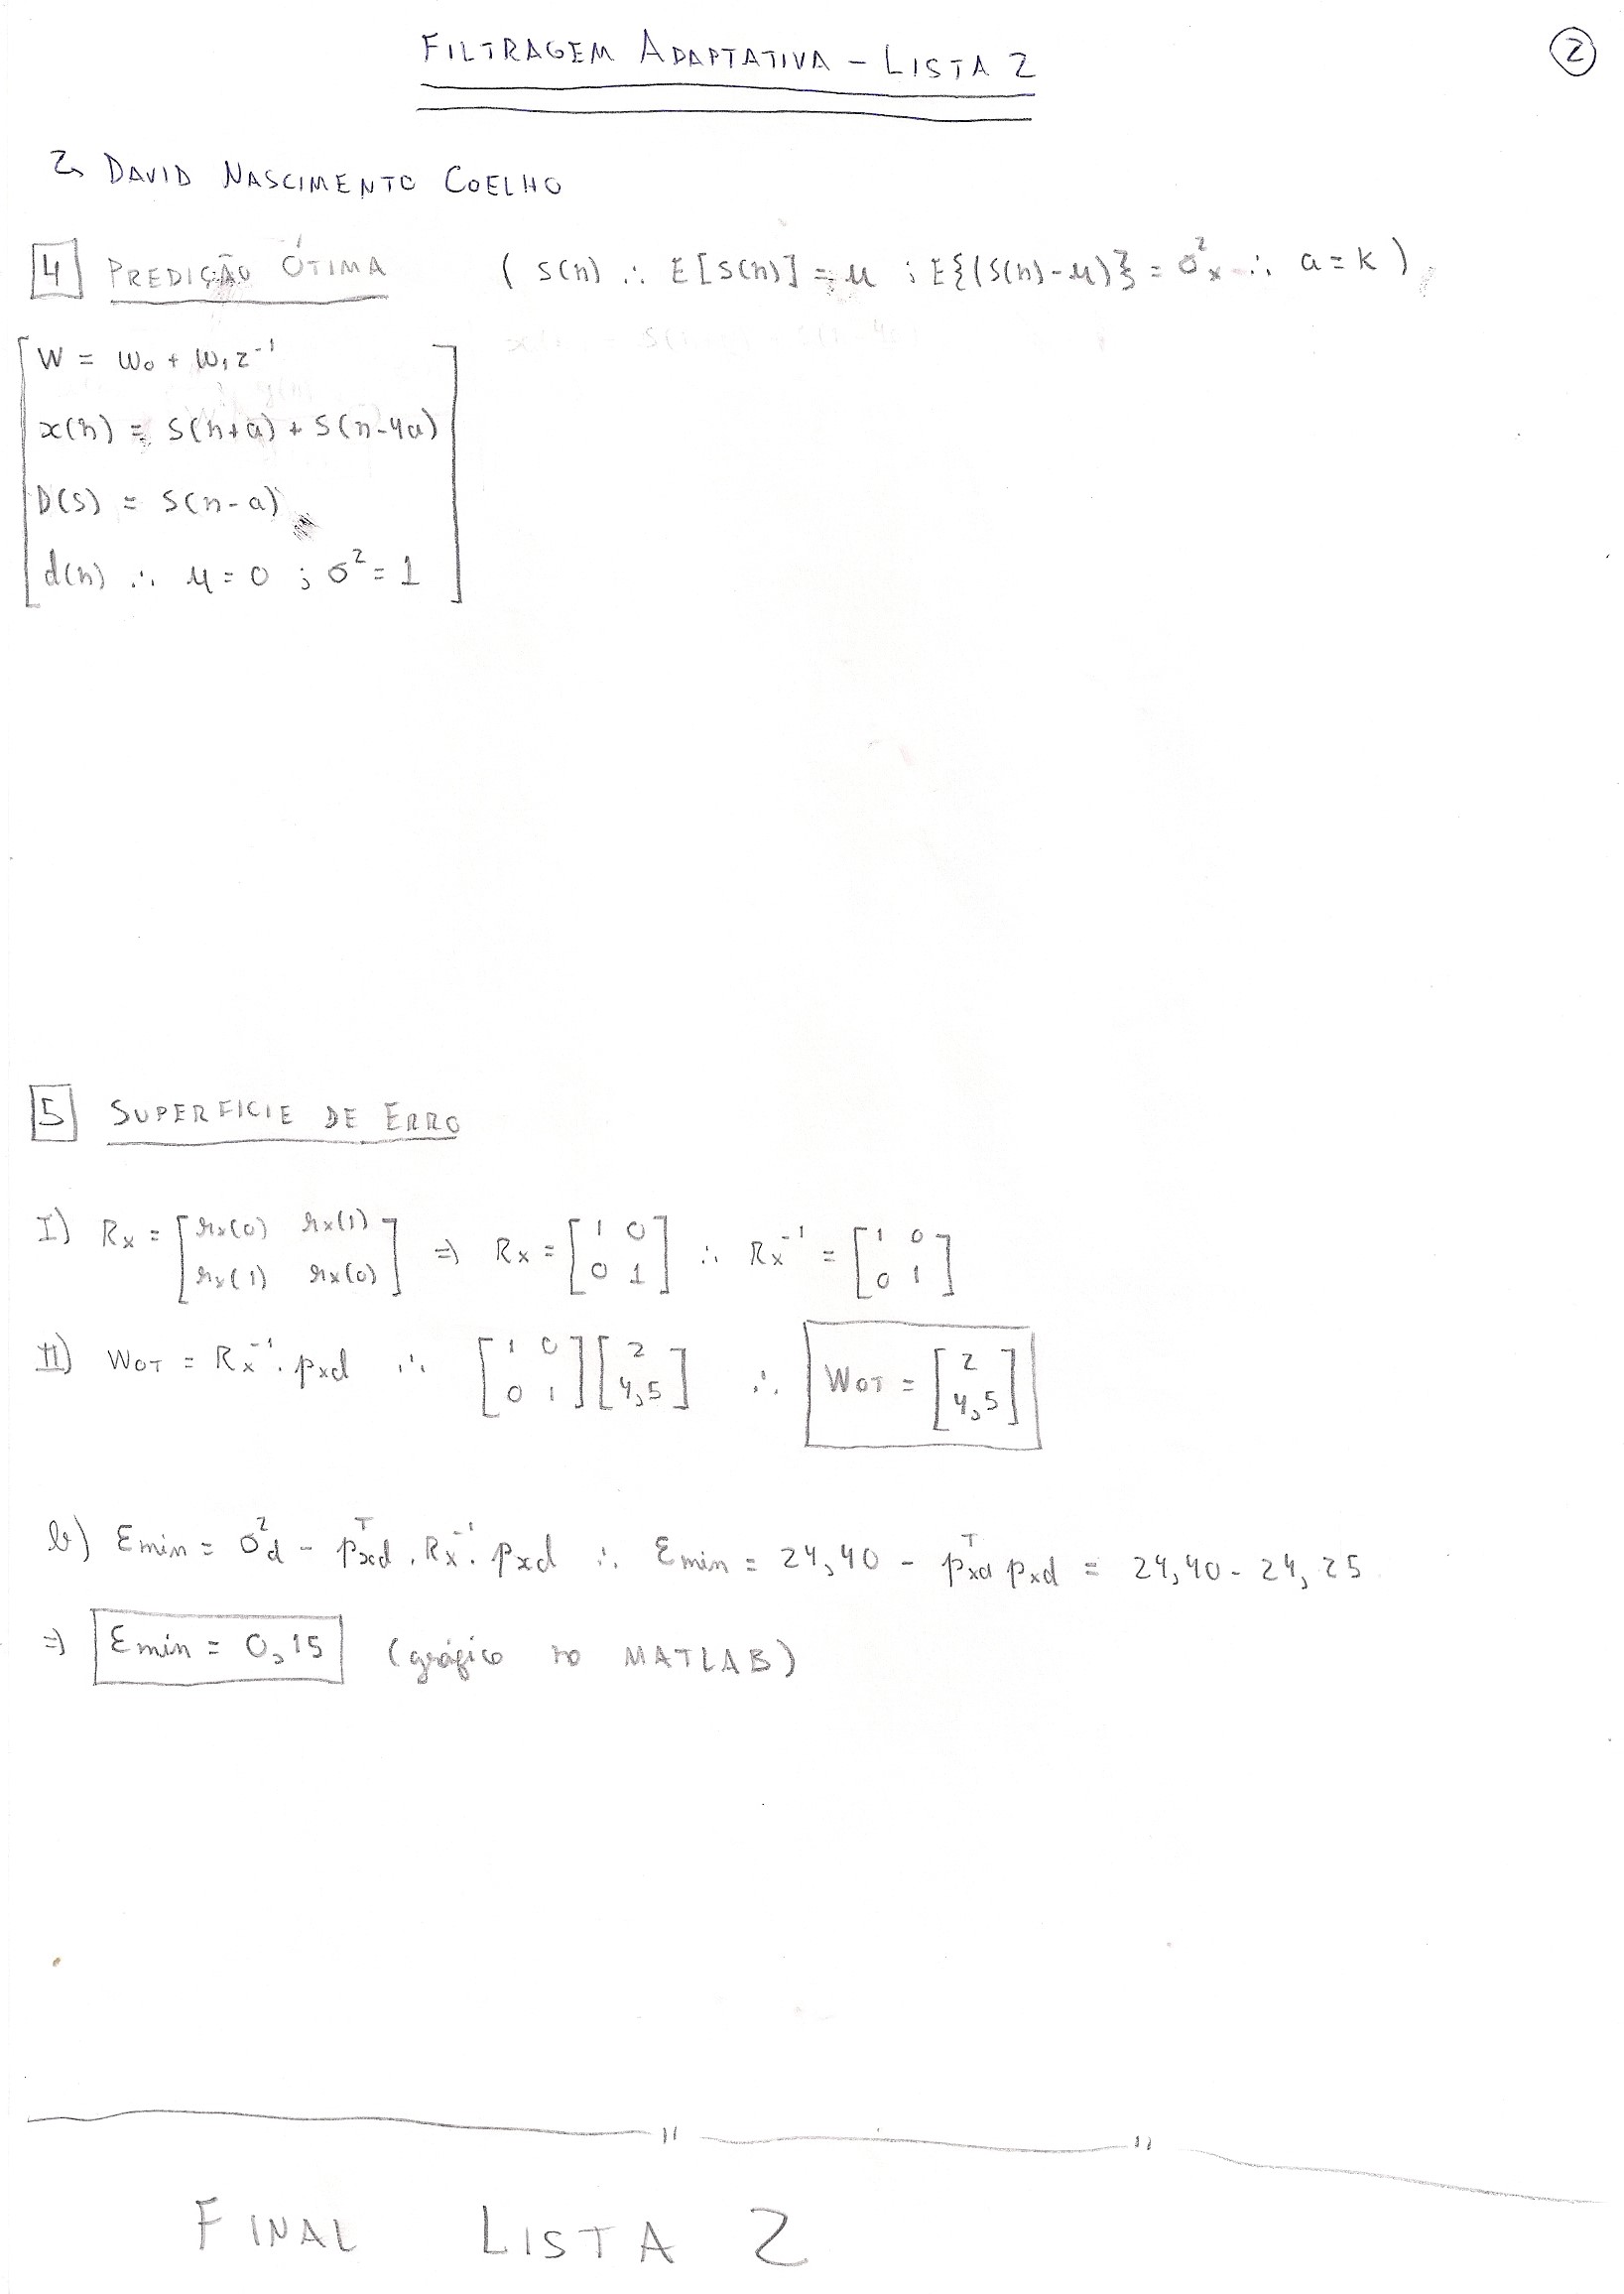 FILTRAGEM ADAPTATIVA – LISTA 2
2
↳ DAVID NASCIMENTO COELHO
4 PREDIÇÃO ÓTIMA ( s(n) ∴ E[s(n)] = μ ; E{(s(n)-μ)} = σ²x ∴ a = k )
W = w₀ + w₁z⁻¹
x(n) = s(n+a) + s(n-4a)
D(s) = s(n-a)
d(n) ∴ μ = 0 ; σ² = 1
5 SUPERFICIE DE ERRO
I) Rx = [rx(0) rx(1); rx(1) rx(0)] ⇒ Rx = [1 0; 0 1] ∴ Rx⁻¹ = [1 0; 0 1]
II) WOT = Rx⁻¹. pxd ∴ [1 0; 0 1][2; 4,5] ∴ WOT = [2; 4,5]
b) Emin = σ²d - pᵀxd . Rx⁻¹. pxd ∴ Emin = 24,40 - pᵀxd pxd = 24,40 - 24,25
⇒ Emin = 0,15 (gráfico no MATLAB)
FINAL LISTA 2